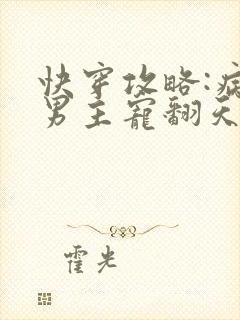 快穿攻略:病
男主宠翻天
霍光